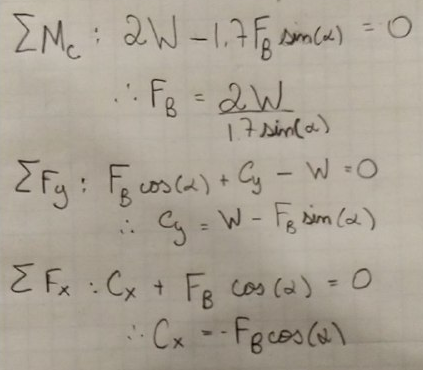 ΣM_c : 2W - 1.7F_B sin(α) = 0
∴ F_B = 2W / 1.7 sin(α)
ΣF_y : F_B cos(α) + C_y - W = 0
∴ C_y = W - F_B sin(α)
ΣF_x : C_x + F_B cos(α) = 0
∴ C_x = -F_B cos(α)